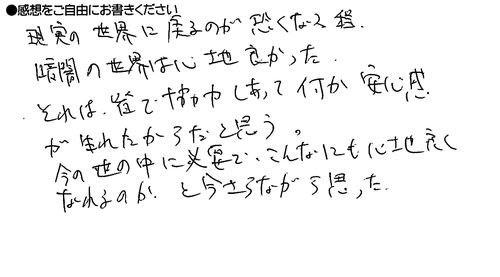 ●感想をご自由にお書きください
現実の世界に戻るのが恐くなる程、
暗闇の世界は心地良かった。
それは、皆で協力しあって何か安心感
が生れたからだと思う。
今の世の中に必要で、こんなにも心地良く
なれるのか、と今さらながら思った。